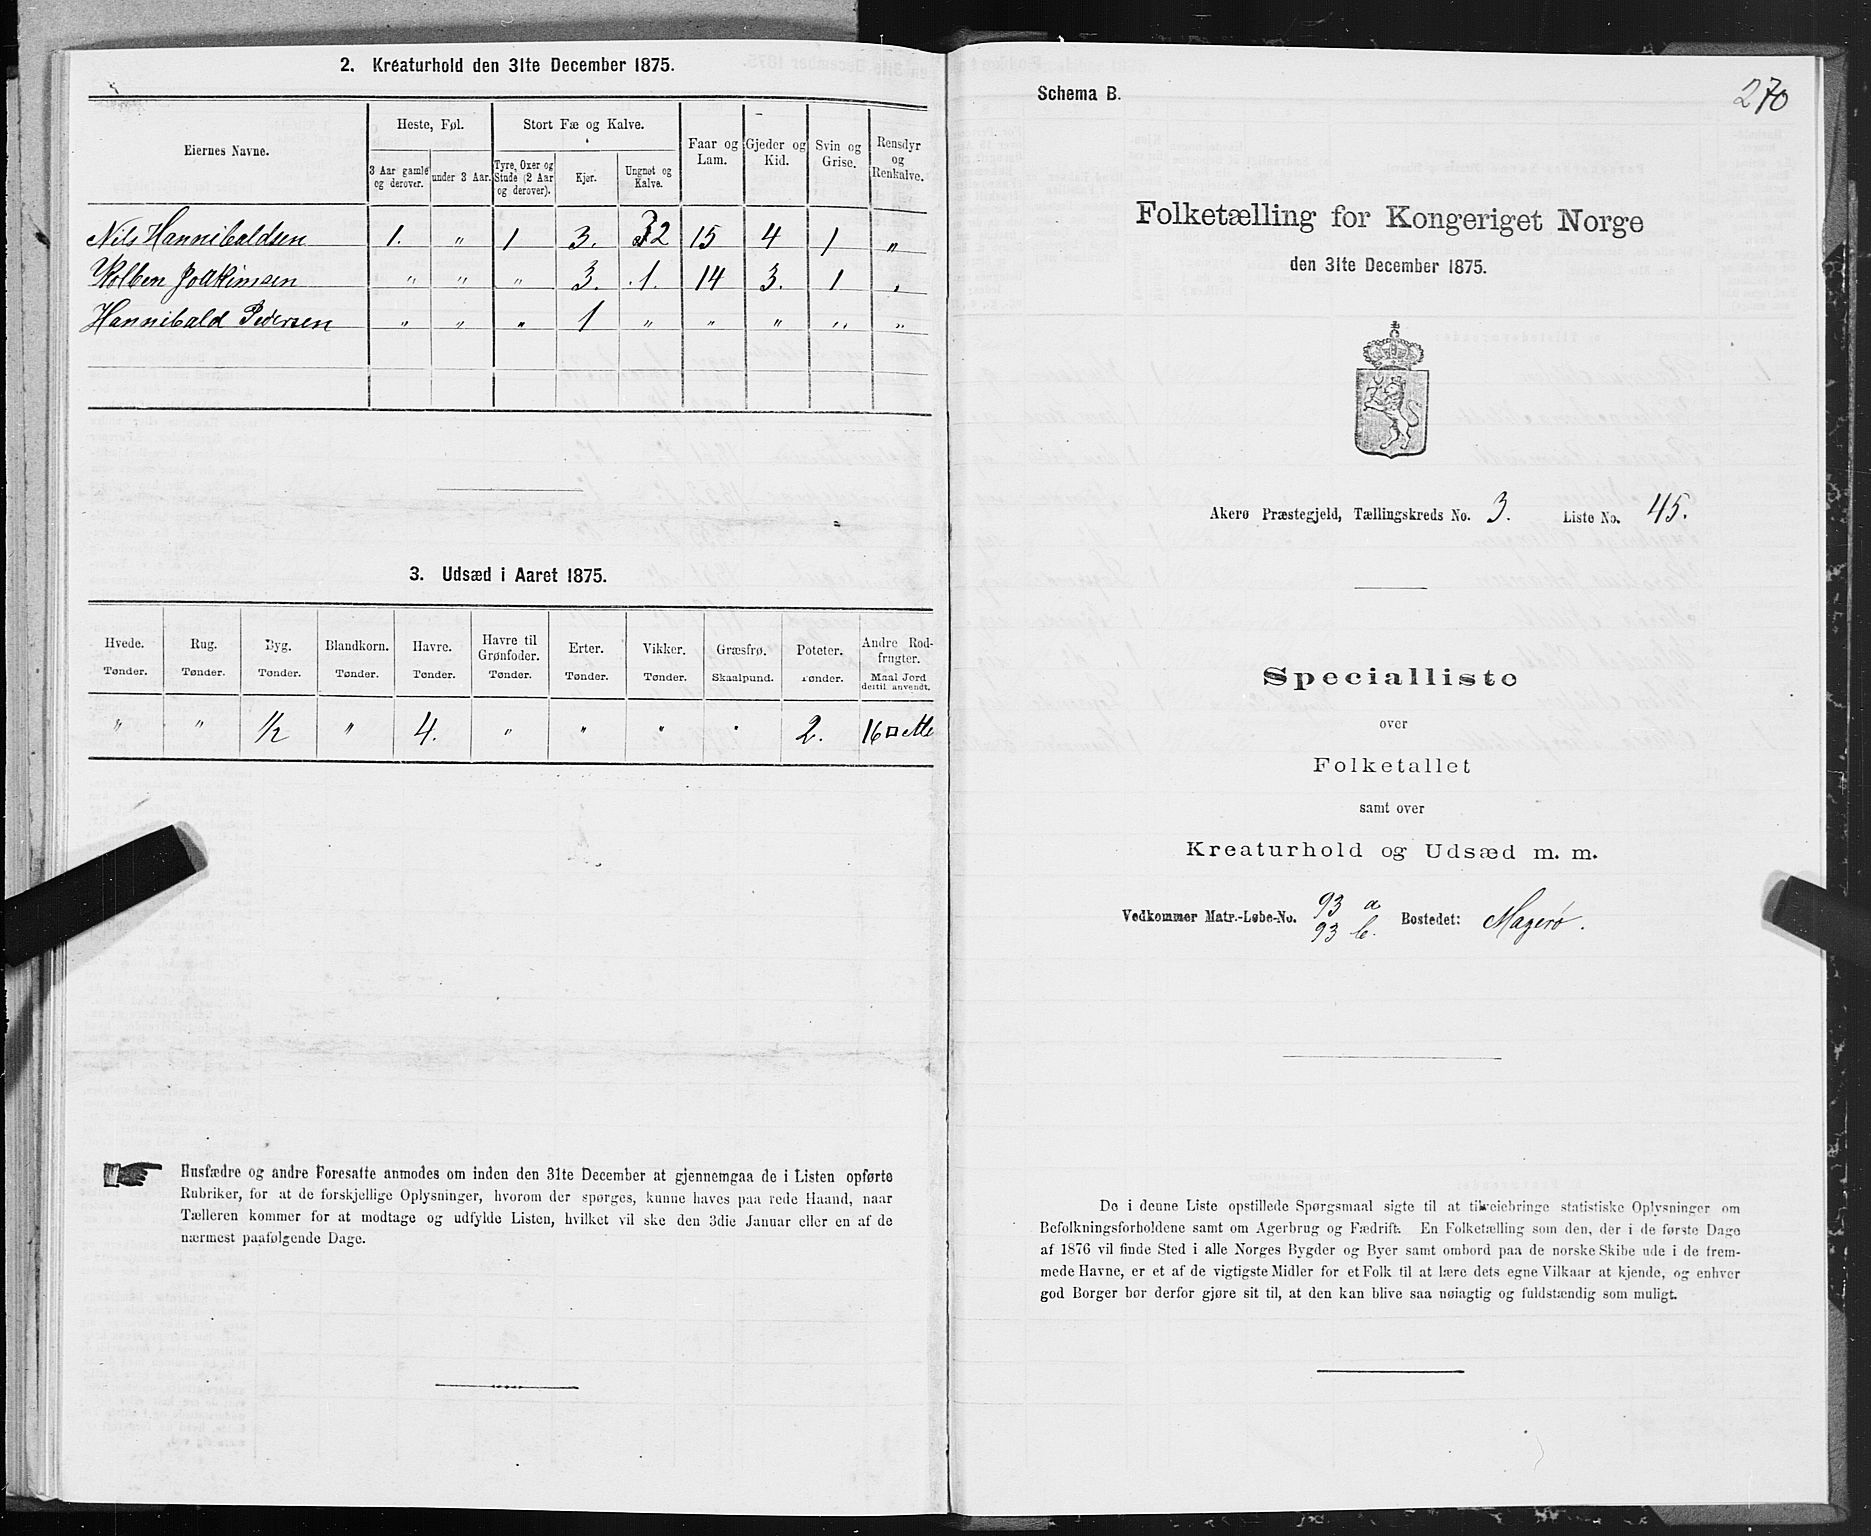 2. Kreaturhold den 31te December 1875.
Eiernes Navne.
Heste, Føl.
Stort Fæ og Kalve.
Faar og Lam.
Gjeder og Kid.
Svin og Grise.
Rensdyr og Renkalve.
3 Aar gamle og derover.
under 3 Aar.
Tyre, Oxer og Stude (2 Aar og derover).
Kjør.
Ungnøt og Kalve.
Nils Hannibaldsen 1. " 1 3. 2 15 4 1 "
Kolben Joakimsen " " " 3. 1. 14 3. 1 "
Hannibald Pedersen " " " 1 " " " " "
3. Udsæd i Aaret 1875.
Hvede. Rug. Byg. Blandkorn. Havre. Havre til Grønfoder. Erter. Vikker. Græsfrø. Poteter. Andre Rodfrugter.
Tønder. Tønder. Tønder. Tønder. Tønder. Tønder. Tønder. Tønder. Skaalpund. Tønder. Maal Jord dertil anvendt.
" " 1/2 " 4. " " " " 2. 16 □
Husfædre og andre Foresatte anmodes om inden den 31te December at gjennemgaa de i Listen opførte
Rubriker, for at de forskjellige Oplysninger, hvorom der spørges, kunne haves paa rede Haand, naar
Tælleren kommer for at modtage og udfylde Listen, hvilket vil ske den 3die Januar eller en af de
nærmest paafølgende Dage.
270
Schema B.
Folketælling for Kongeriget Norge
den 31te December 1875.
Akerø Præstegjeld, Tællingskreds No. 3. Liste No. 45.
Specialliste
over
Folketallet
samt over
Kreaturhold og Udsæd m. m.
Vedkommer Matr.-Løbe-No. 93 a 93 b. Bostedet: Magerø.
De i denne Liste opstillede Spørgsmaal sigte til at tilveiebringe statistiske Oplysninger om
Befolkningsforholdene samt om Agerbrug og Fædrift. En Folketælling som den, der i de første Dage
af 1876 vil finde Sted i alle Norges Bygder og Byer samt ombord paa de norske Skibe ude i de frem-
mede Havne, er et af de vigtigste Midler for et Folk til at lære dets egne Vilkaar at kjende, og enhver
god Borger bør derfor gjøre sit til, at den kan blive saa nøiagtig og fuldstændig som muligt.